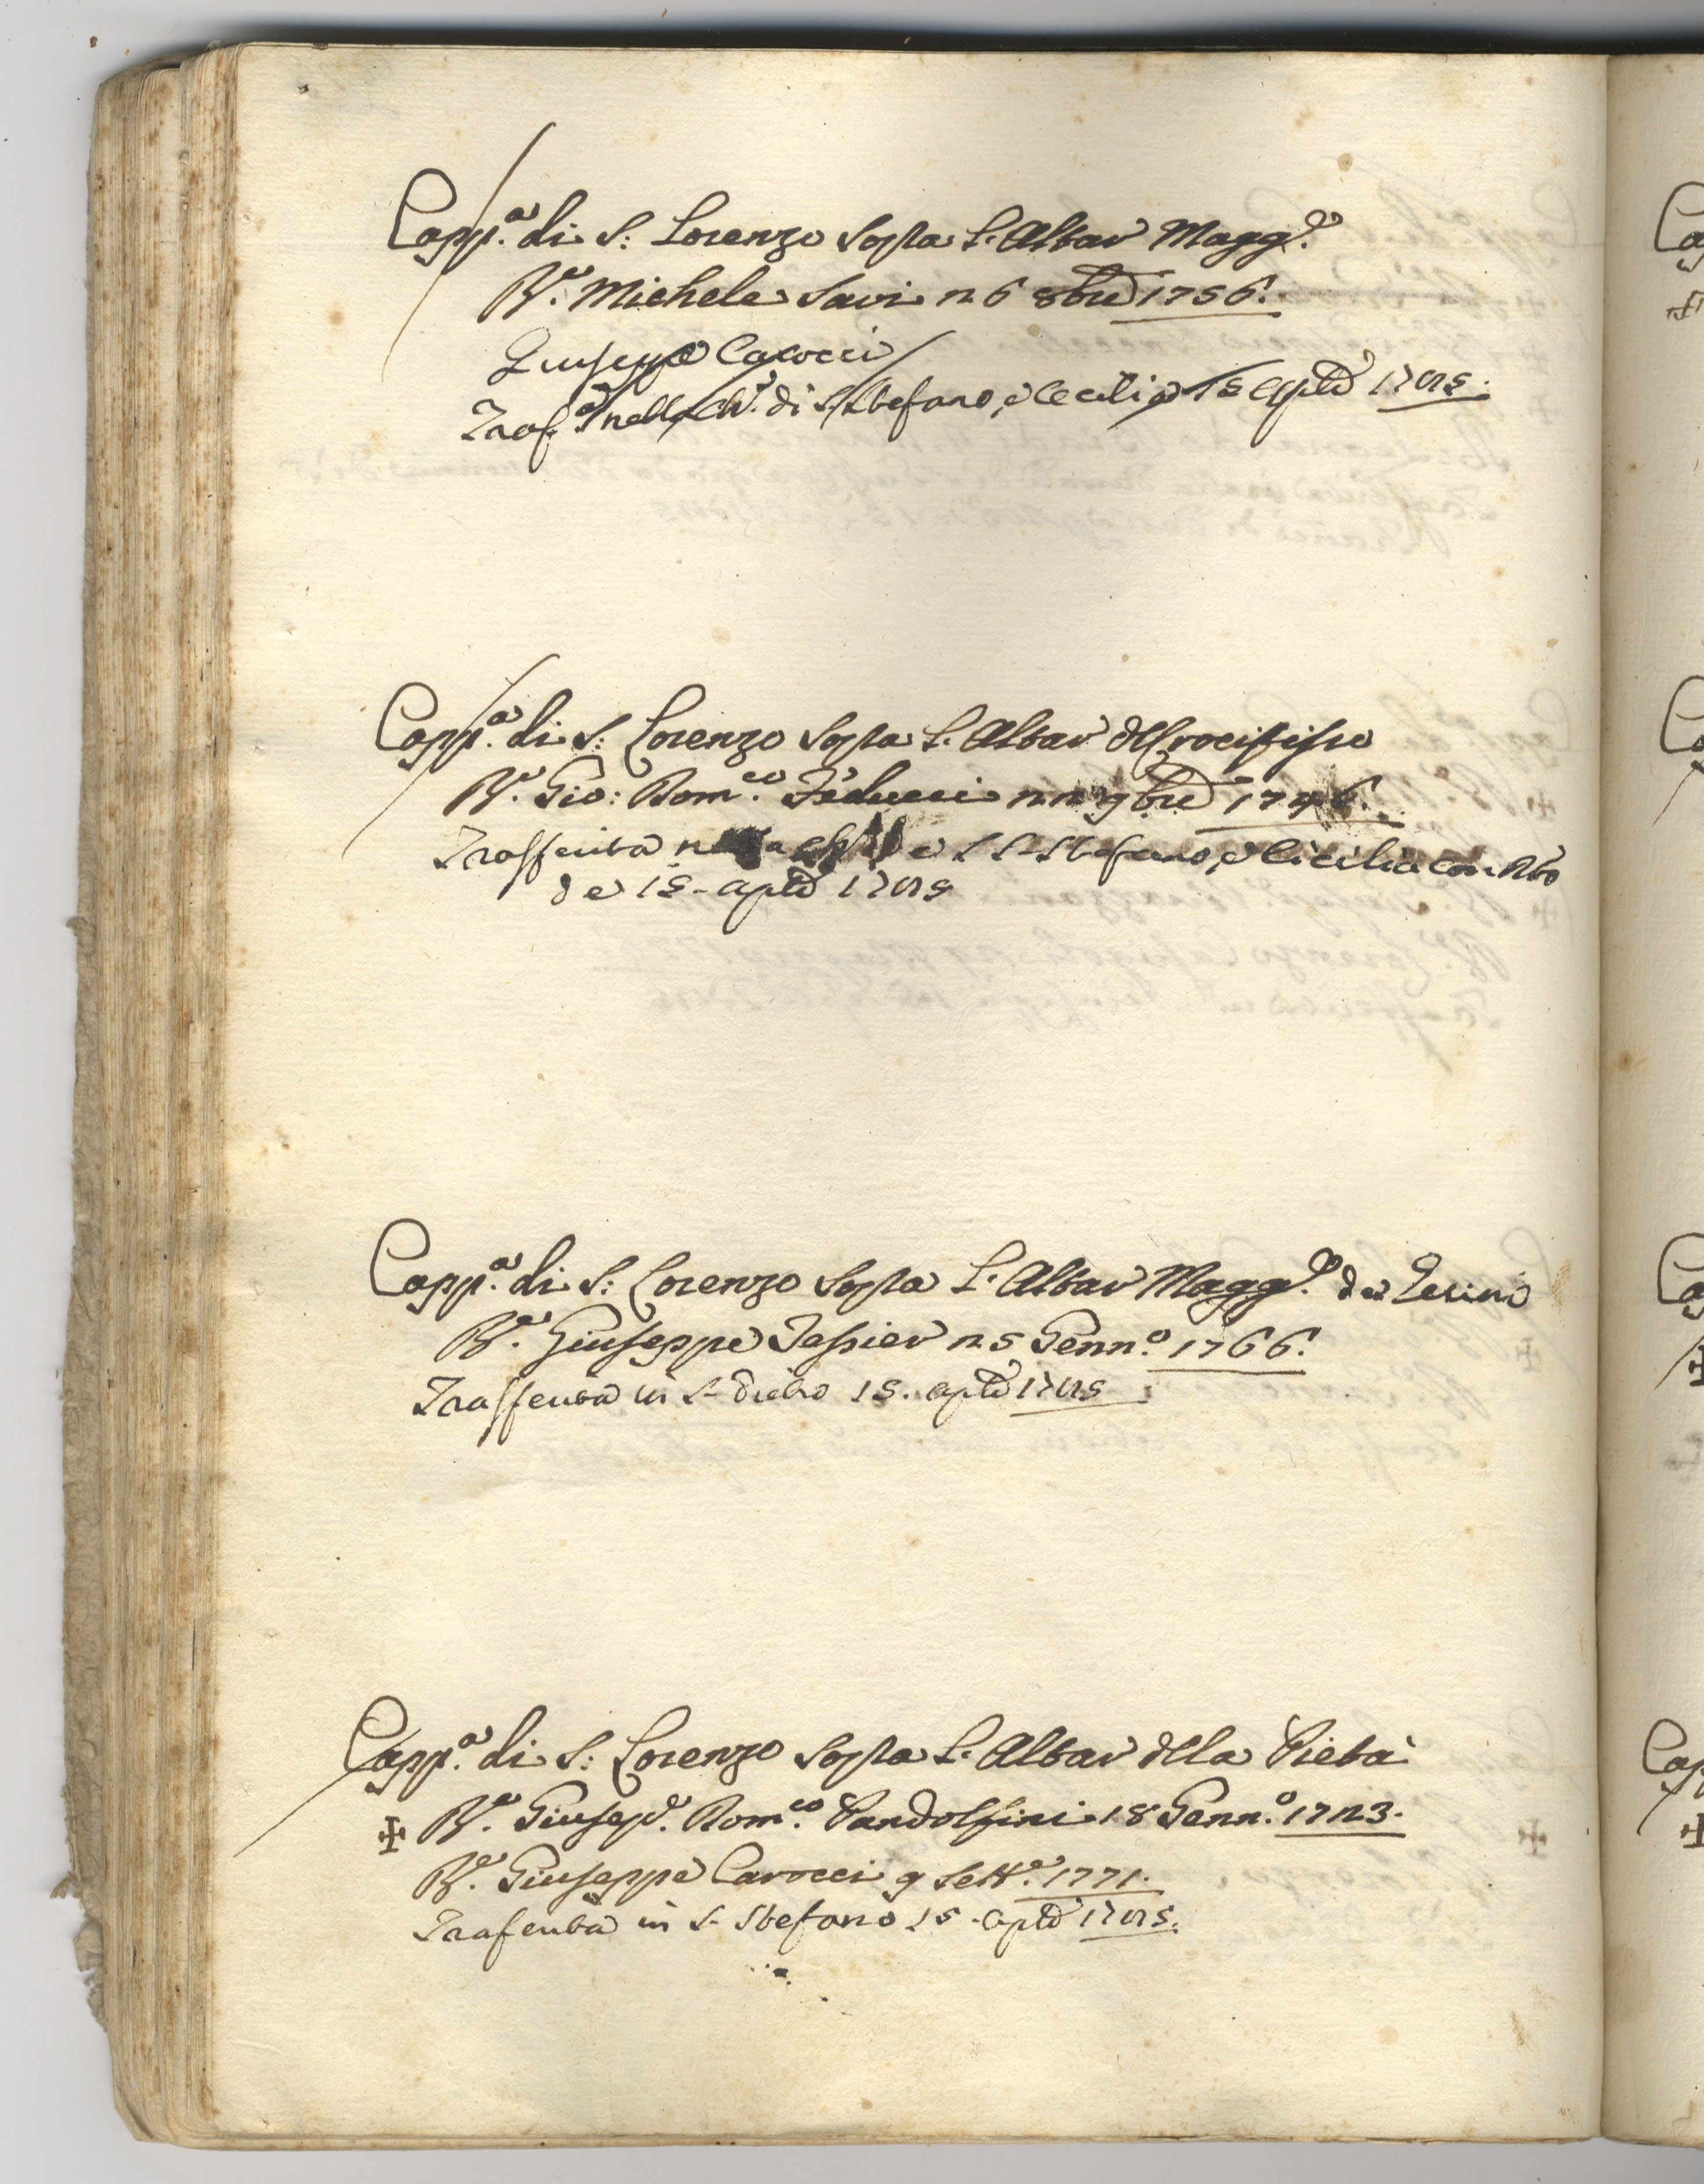 Capp.a di S: Lorenzo sop.a l'Altar Magg.e
R.o Michele Savi 26 8bre 1756.
Giuseppe Carocci
Trasf.a nella Ch.a di S. Stefano, e Cecilia 15 Aprile 1785.
Capp.a di S: Lorenzo sop.a l'Altar del Crocifisso
R.o Gio: Dom.co Feducci 22 9bre 1746.
Trasferita nella di SS. Stefano, e Cicilia con
de 15. Aprile 1785
Capp.a di S: Lorenzo sop.a l'Altar Magg.e de
R.o Giuseppe Tessier 25 Genn.o 1766.
Trasferita in S. Pietro 15. Aprile 1785
Capp.a di S: Lorenzo sop.a l'Altar della Pietà
✠ R.o Giusep.e Dom.co Pandolfini 18 Genn.o 1723.
R.o Giuseppe Carocci 9 Sett.e 1771.
Trasferita in S. Stefano 15. Aprile 1785.